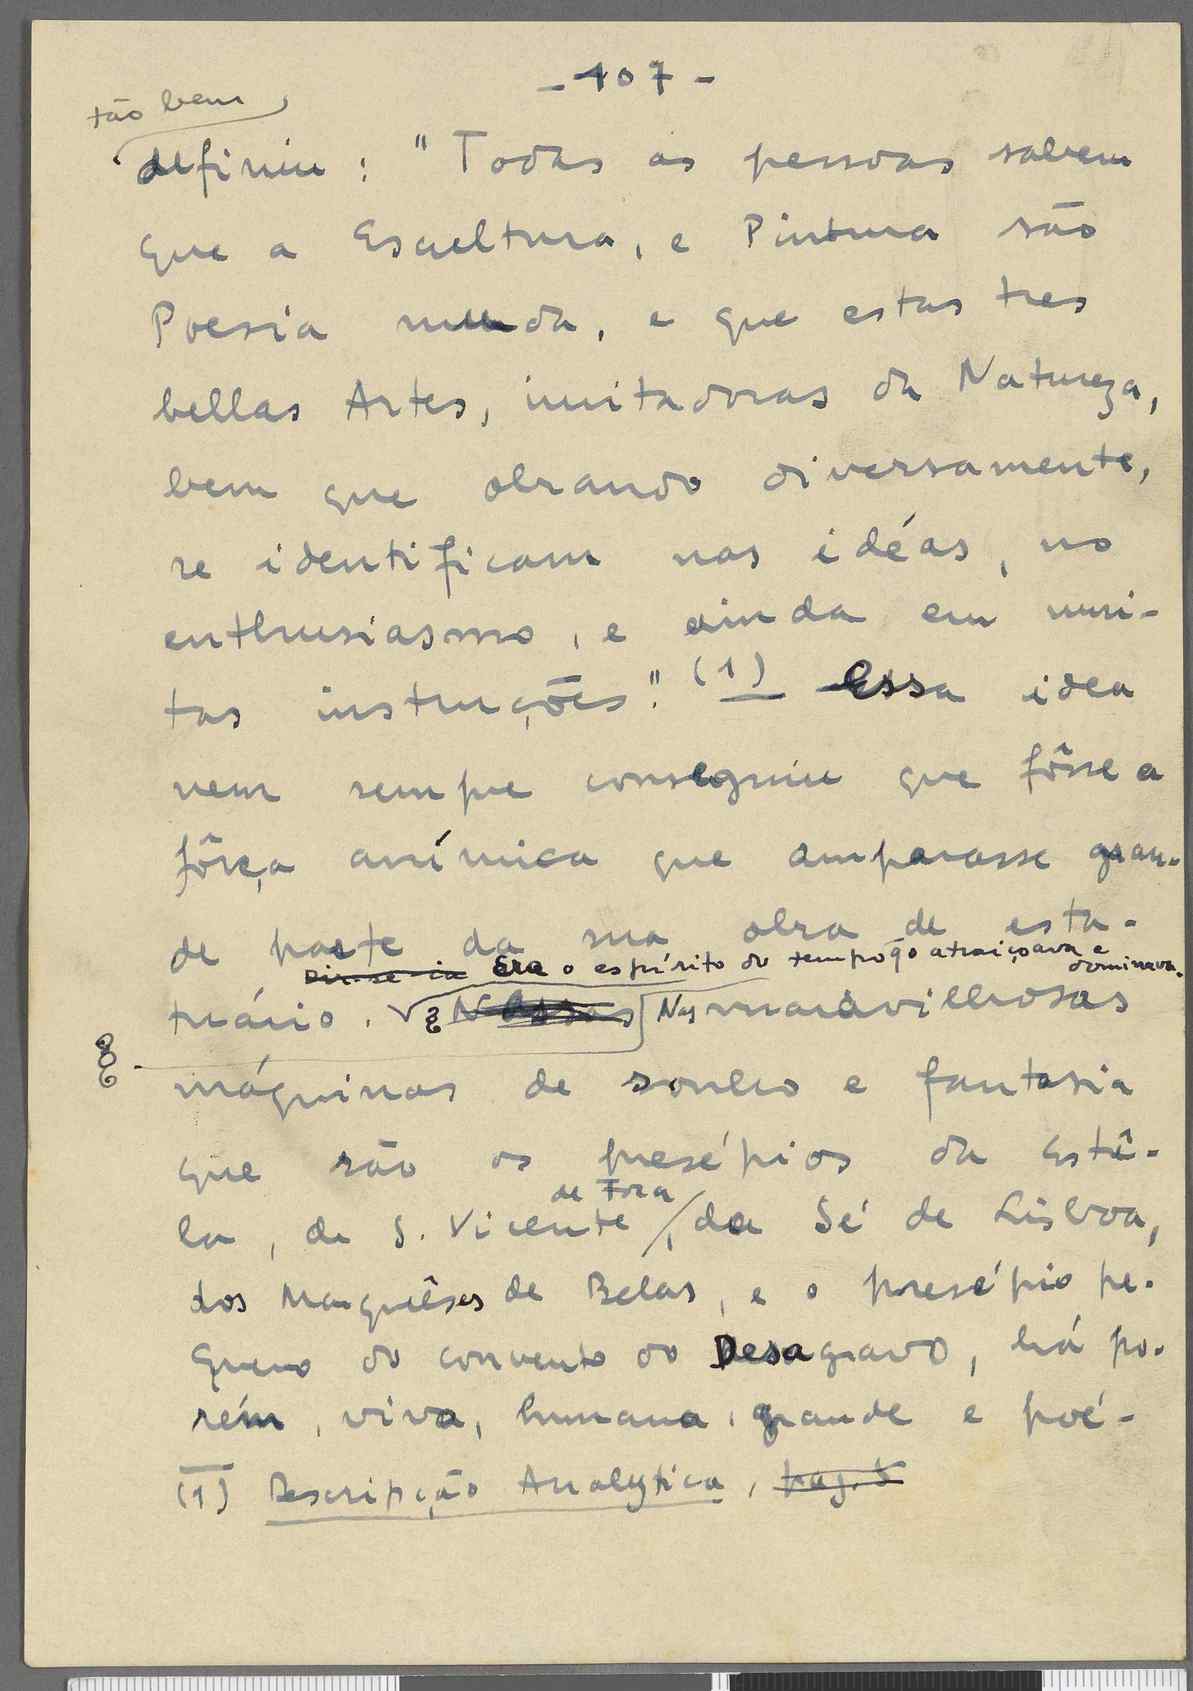 - 107 -
tão bem
definiu : "Todas as pessoas sabem
que a Escultura, e Pintura são
Poesia muda, e que estas tres
bellas Artes, imitadoras da Natureza,
bem que obrando diversamente,
se identificam nas idéas, no
enthusiasmo, e ainda em mui-
tas instruções". (1) Essa idea
nem sempre conseguiu que fôsse a
fôrça anímica que amparasse gran-
de parte da sua obra de esta-
Dir-se-ia Era o espírito do tempo q̃ o atraiçoava e
dominava.
tuário. Nessas Nas maravilhosas
máquinas de sonho e fantasia
que são os presépios da Estrê-
de Fora
la, de S. Vicente, da Sé de Lisboa,
dos Marquêses de Belas, e o presépio pe-
queno do convento do Desagravo, há po-
rém, viva, humana, grande e poé-
(1) Descripção Analytica, pag. 5